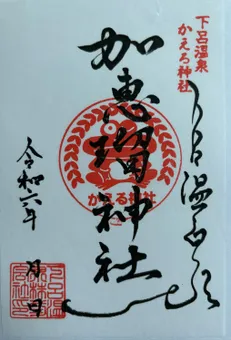 下呂温泉
かえる神社
下呂温泉
加恵瑠神社
かえる神社
令和六年 月 日